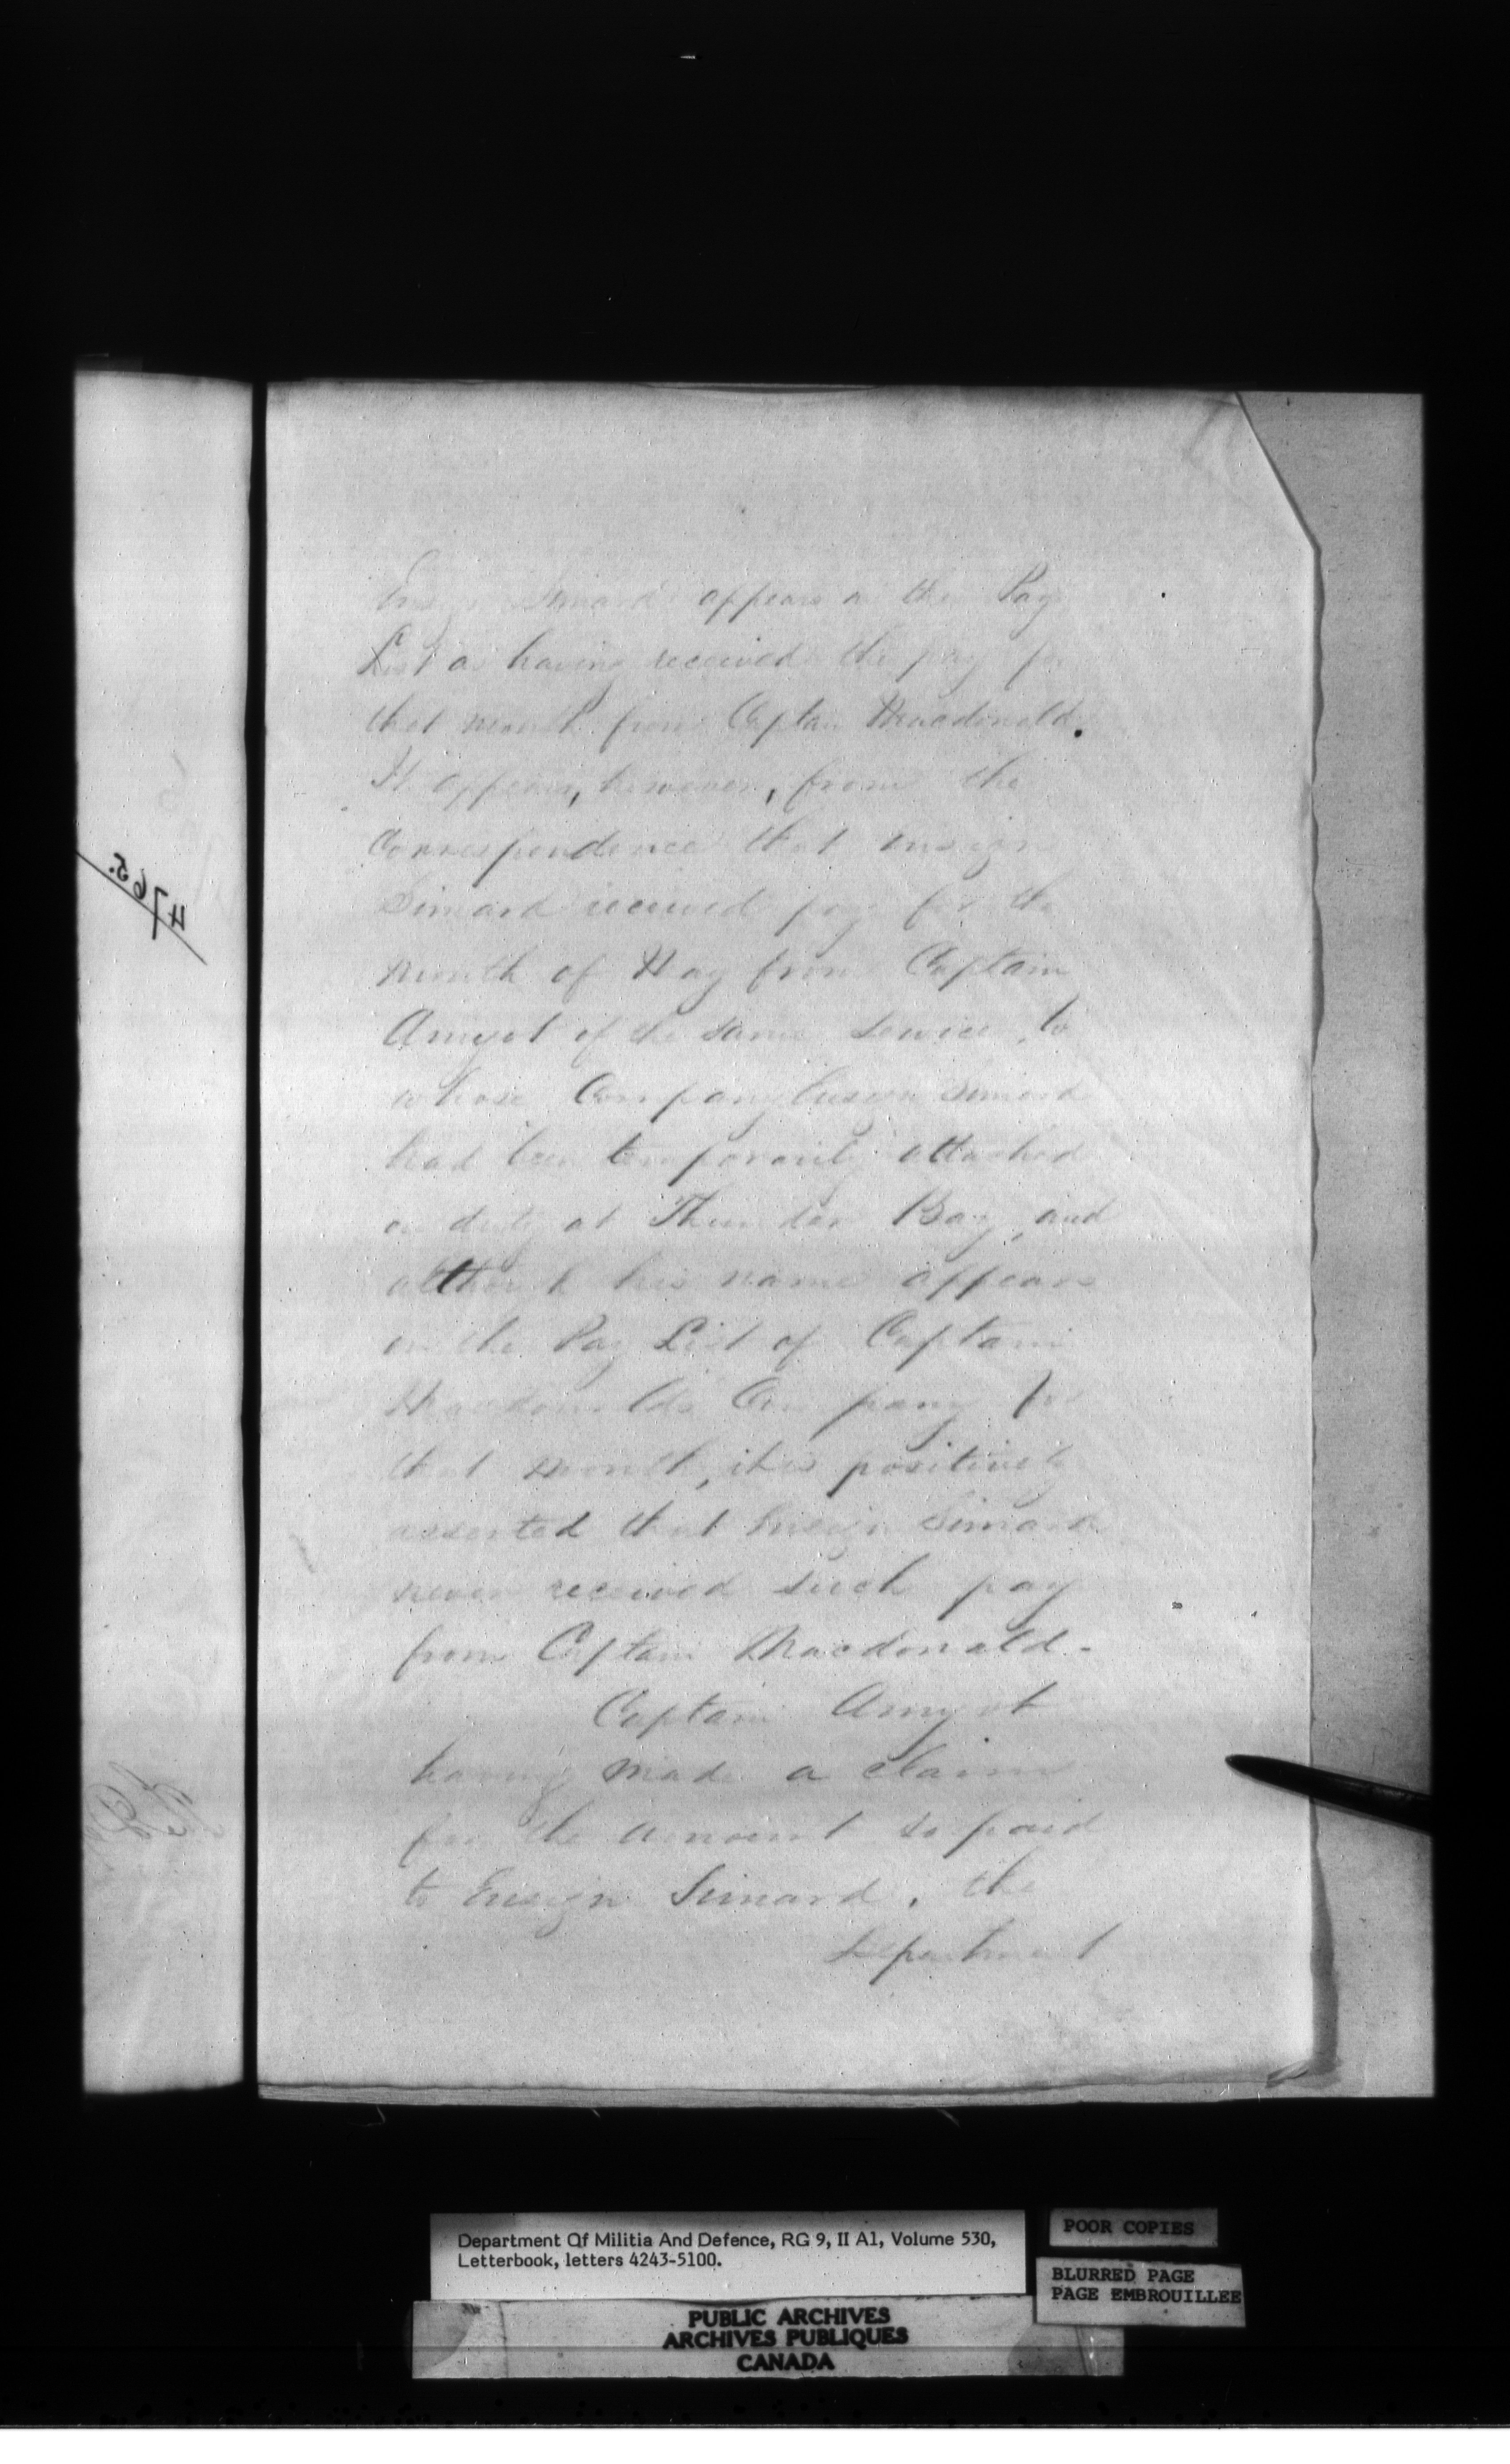 Ensign Simard appears on the Pay
List as having received the pay for
that month from Captain Macdonald.
It appears, however, from the
Correspondence that Ensign
Simard received pay for the
month of May from Captain
Amyot of the same service, to
whose Company Ensign Simard
had been temporarily attached
on duty at Thunder Bay, and
although his name appears
on the Pay List of Captain
Macdonald's Company for
that month, it is positively
asserted that Ensign Simard
never received such pay
from Captain Macdonald.-
Captain Amyot
having made a claim
for the amount so paid
to Ensign Simard, the
Department
4765.
Department Of Militia And Defence, RG 9, II A1, Volume 530,
Letterbook, letters 4243-5100.
POOR COPIES
BLURRED PAGE
PAGE EMBROUILLEE
PUBLIC ARCHIVES
ARCHIVES PUBLIQUES
CANADA